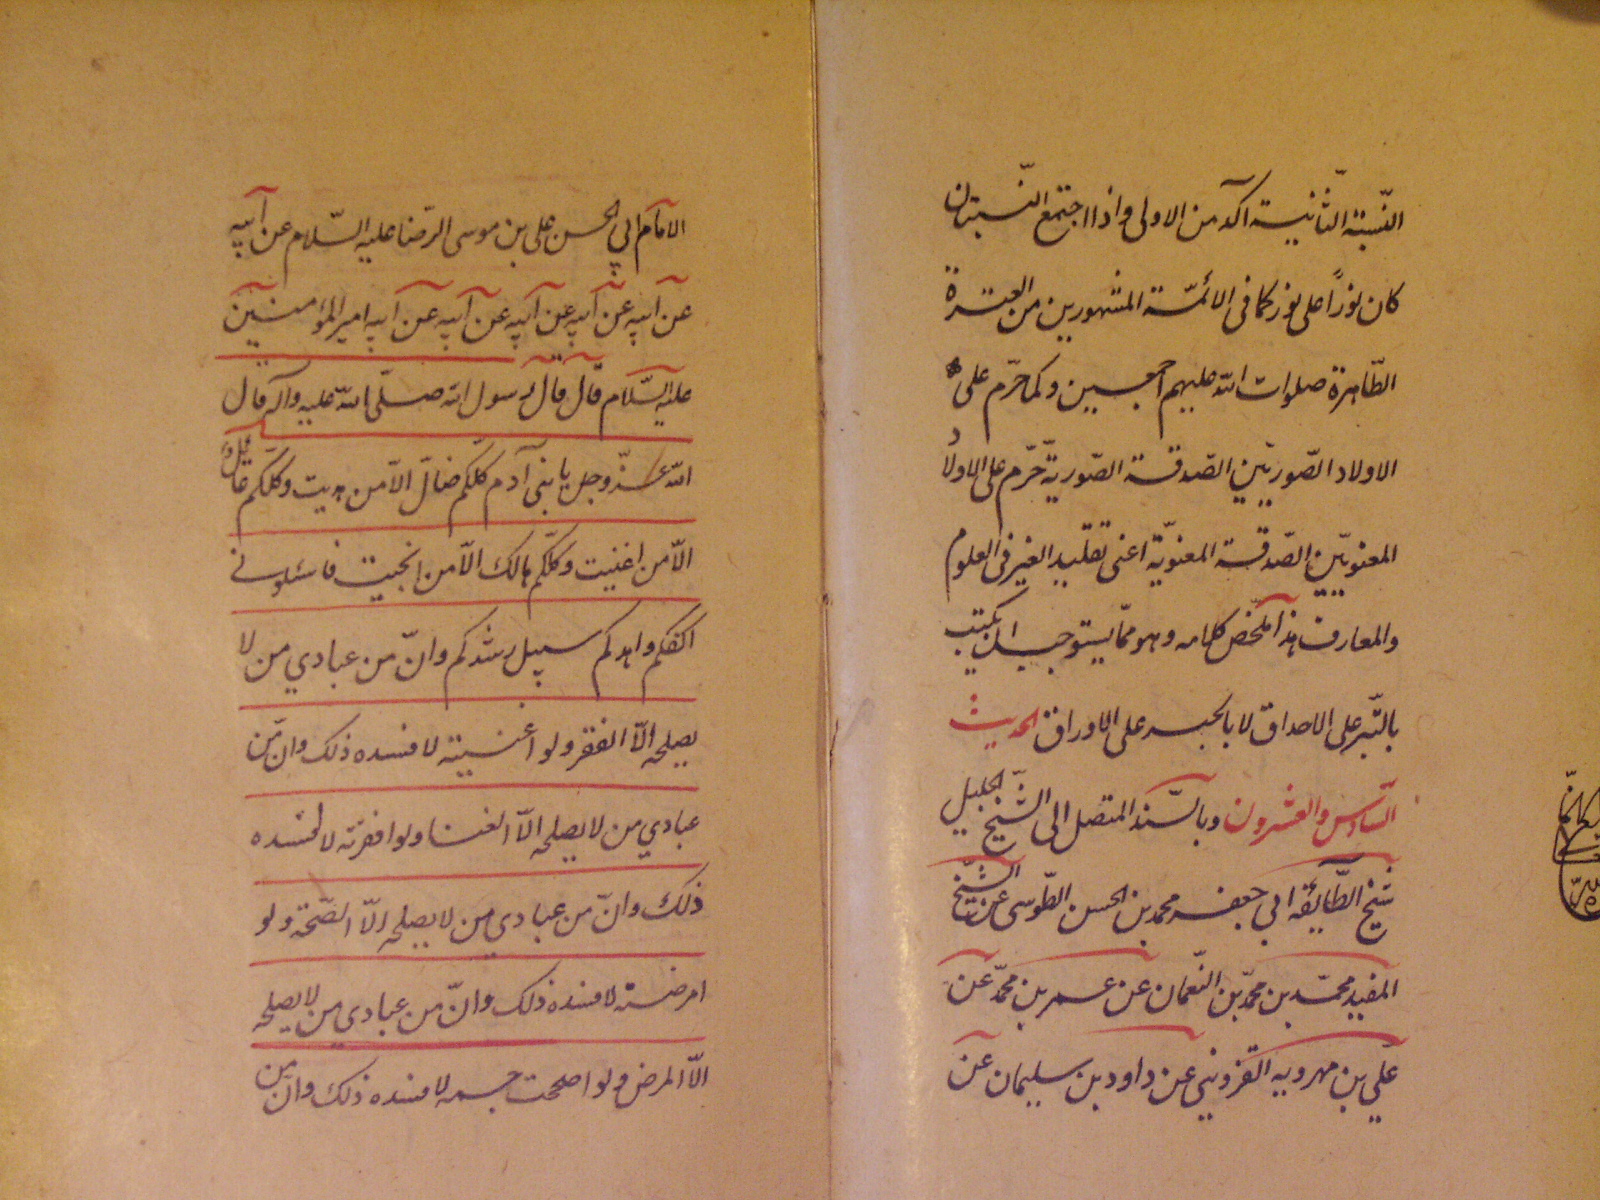 النّسبة الثّانية اكد من الاولى واذا اجتمع النّسبتان
كان نوراً على نور كما فى الائمّة المشهورين من العترة
الطّاهرة صلوات الله عليهم اجمعين وكما حرّم على
الاولاد الصّوريّين الصّدقة الصّوريّة حرّم على الاولاد
المعنويّين الصّدقة المعنويّة اعنى تقليد الغير فى العلوم
والمعارف هذا ملخّص كلامه وهو ممّا يستوجب ان يكتب
بالتّبر على الاحداق لا بالحبر على الاوراق الحديث
السّادس والعشرون وبالسّند المتصل الى الشّيخ الجليل
شيخ الطّائفة ابي جعفر محمد بن الحسن الطّوسى عن الشّيخ
المفيد محمّد بن محمّد بن النّعمان عن عمر بن محمّد عن
علي بن مهرويه القزويني عن داود بن سليمان عن
الامام ابي الحسن على بن موسى الرّضا عليه السّلام عن ابيه
عن ابيه عن ابيه عن ابيه عن ابيه عن ابيه امير المؤمنين
عليه السّلام قال قال رسول الله صلّى الله عليه وآله قال
الله عزّوجل يا بنى آدم كلّكم ضالّ الاّ من هديت وكلّكم عائل
الاّ من اغنيت وكلّكم هالك الاّ من انجيت فاسئلونى
اكفكم واهدكم سبيل رشدكم وانّ من عبادي من لا
يصلحه الاّ الفقر ولو اغنيته لافسده ذلك وانّ من
عبادي من لا يصلحه الاّ الغنا ولو افقرته لافسده
ذلك وانّ من عبادي من لا يصلحه الاّ الصّحة ولو
امرضته لافسده ذلك وانّ من عبادي من لا يصلحه
الاّ المرض ولو اصححت جسمه لافسده ذلك وانّ من